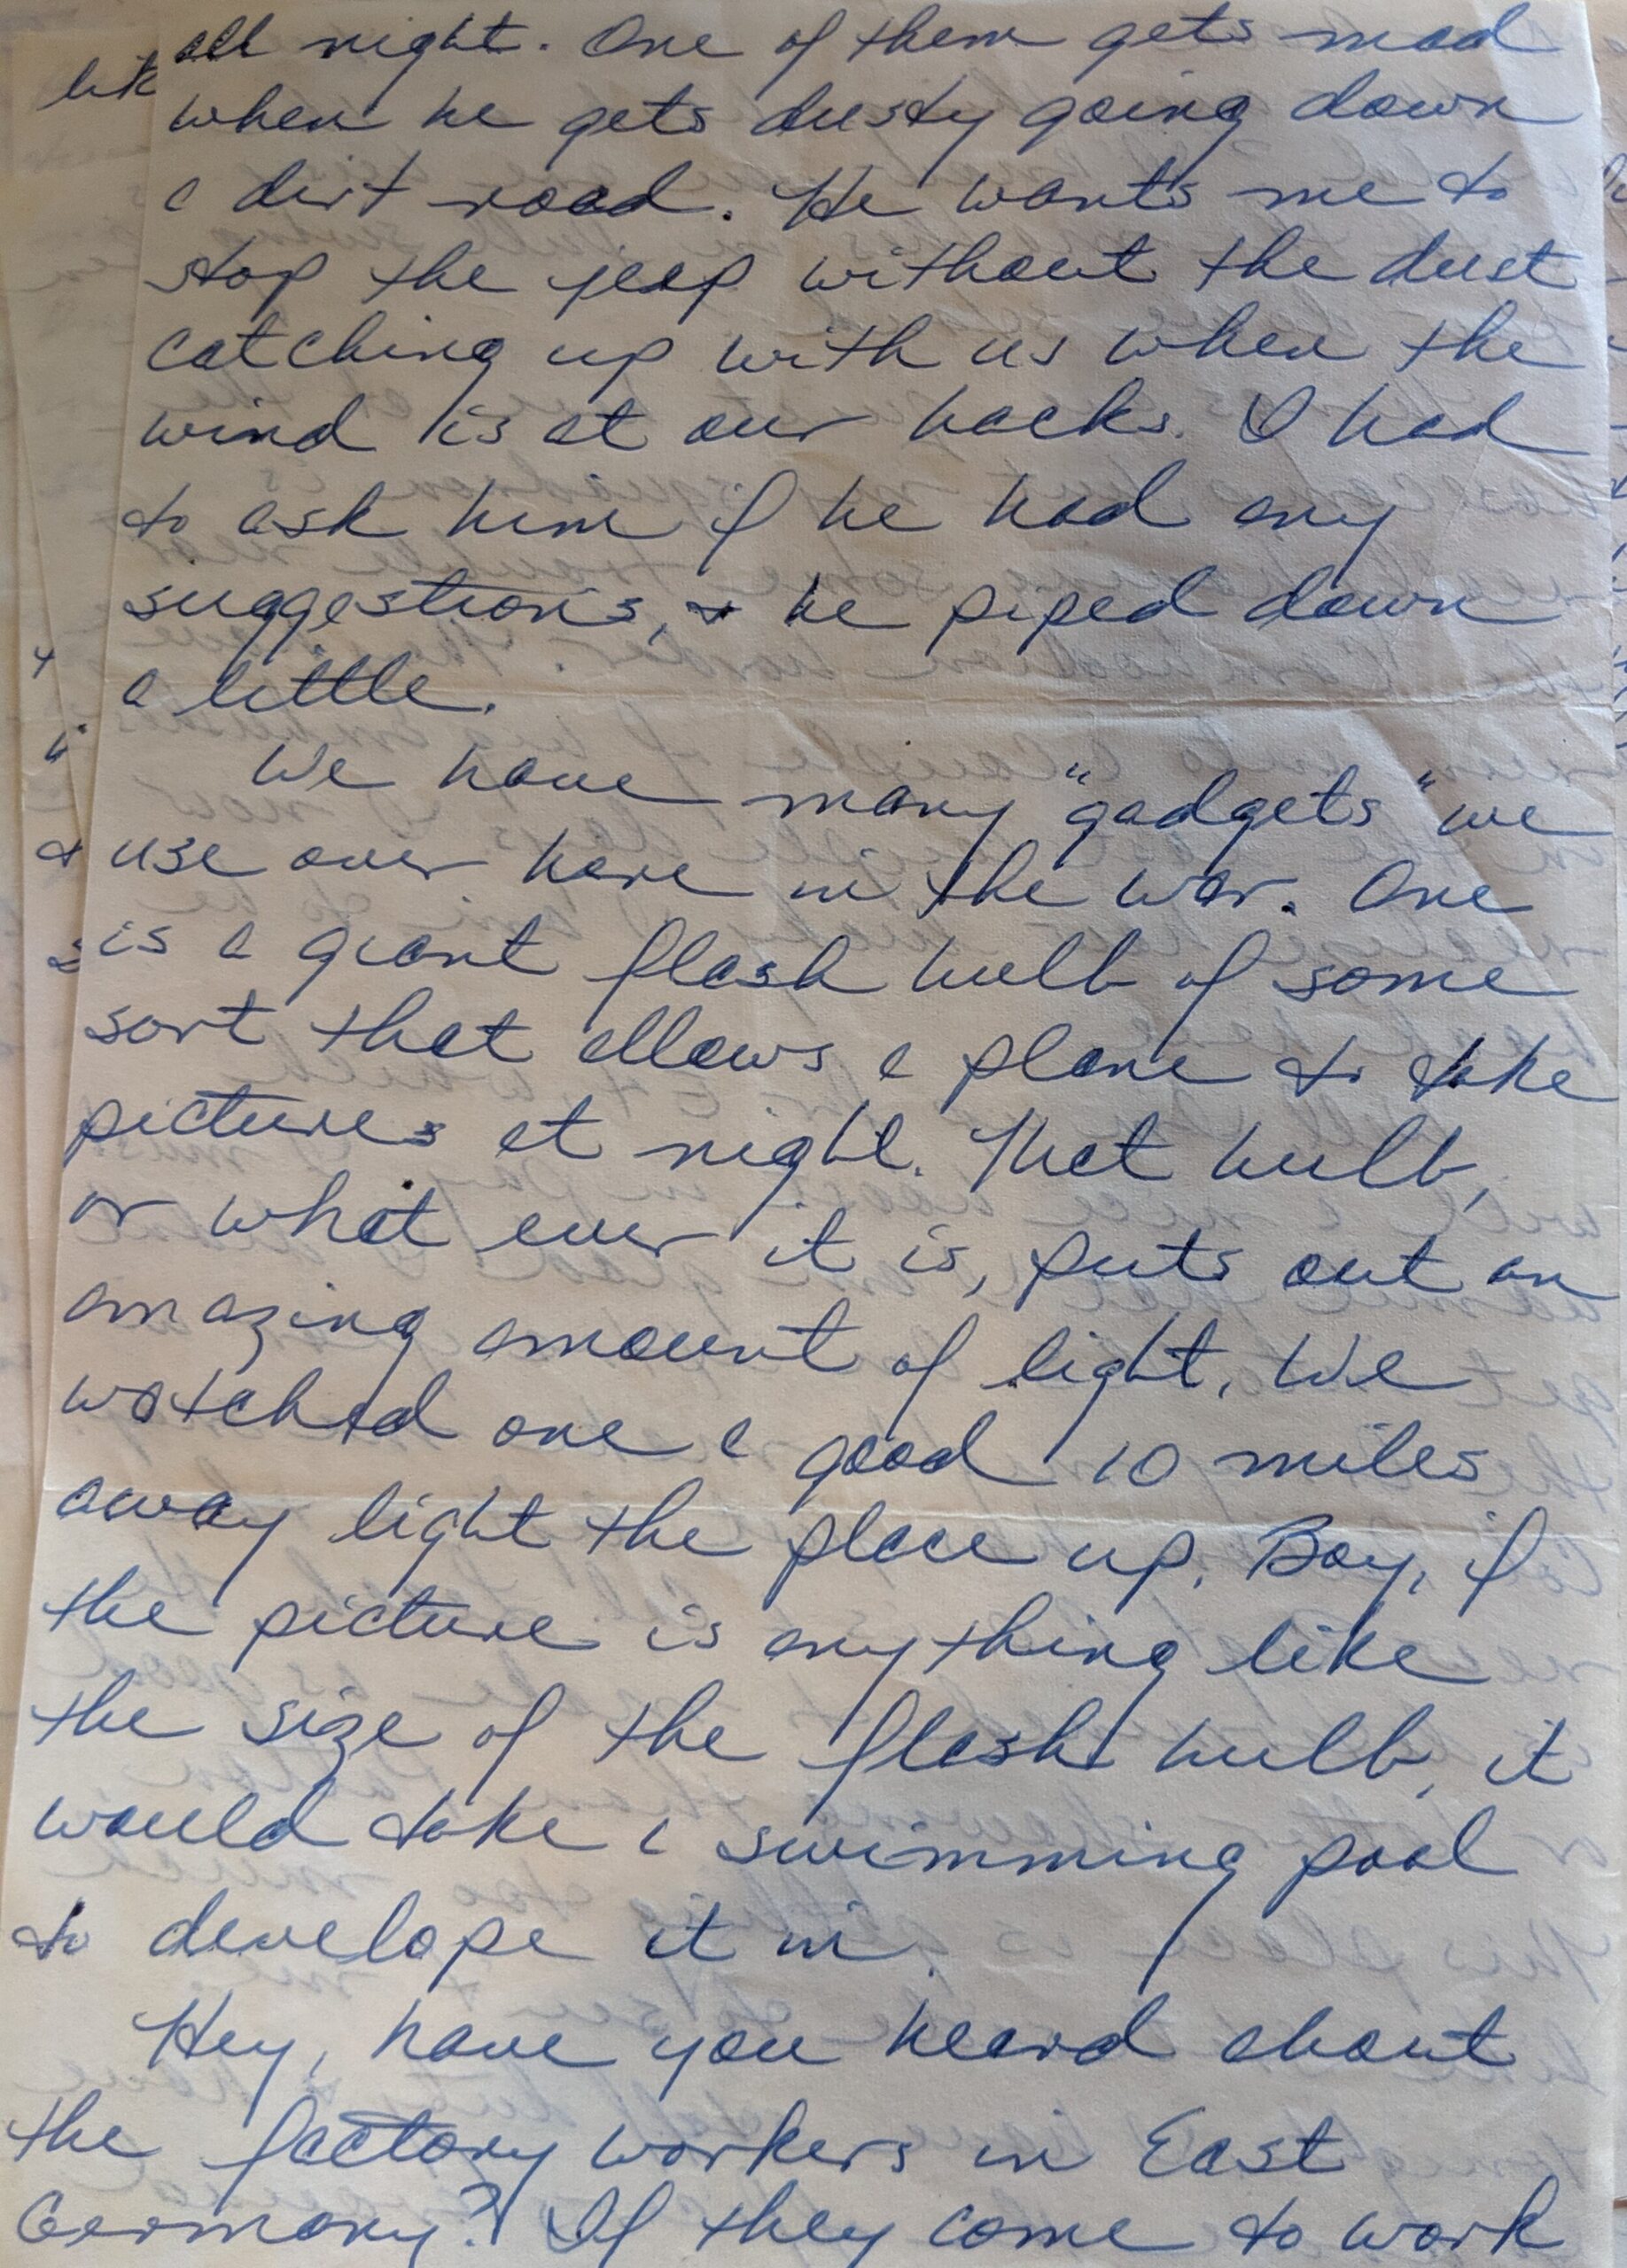 all night. One of them gets mad
when he gets dusty going down
a dirt road. He wants me to
stop the jeep without the dust
catching up with us when the
wind is at our backs. I had
to ask him if he had any
suggestions, & he piped down
a little.
We have many "gadgets" we
use over here in the war. One
is a giant flash bulb of some
sort that allows a plane to take
pictures at night. That bulb,
or what ever it is, puts out an
amazing amount of light. We
watched one a good 10 miles
away light the place up. Boy, if
the picture is anything like
the size of the flash bulb, it
would take a swimming pool
to develope it in.
Hey, have you heard about
the factory workers in East
Germany? If they come to work